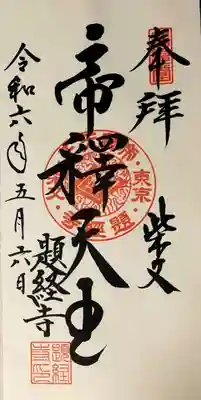 奉拜
柴又
帝釋天王
題経寺
令和六年五月六日
東京
題経寺印